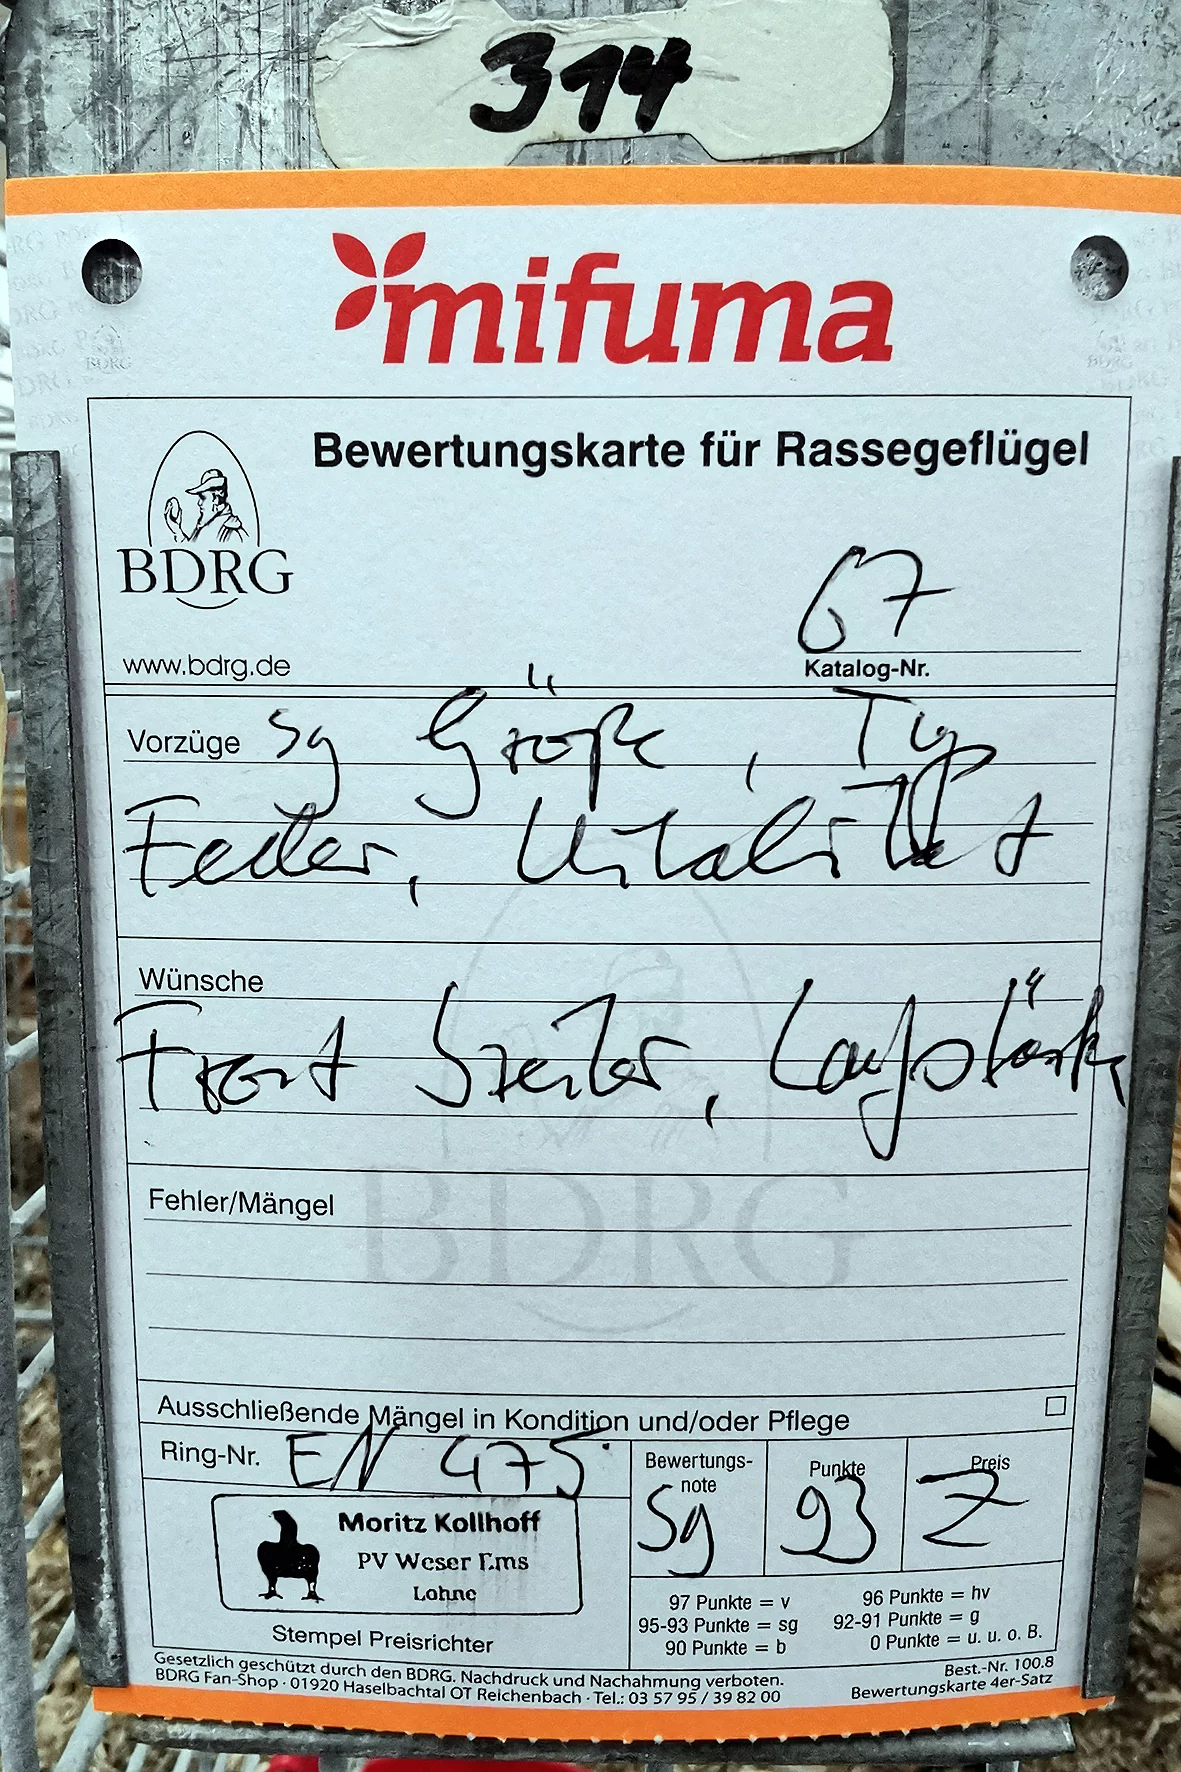 314
mifuma
Bewertungskarte für Rassegeflügel
BDRG
www.bdrg.de
67
Katalog-Nr.
Vorzüge sg Größe, Typ
Feder, Vitalität
Wünsche
Front breiter, Laufstärke
BDRG
Fehler/Mängel
Ausschließende Mängel in Kondition und/oder Pflege
Ring-Nr. EN 475
Bewertungs-
note
Sg
Punkte
93
Preis
Z
Moritz Kollhoff
PV Weser Ems
Lohne
Stempel Preisrichter
97 Punkte = v
96 Punkte = hv
95-93 Punkte = sg
92-91 Punkte = g
90 Punkte = b
0 Punkte = u. u. o. B.
Gesetzlich geschützt durch den BDRG. Nachdruck und Nachahmung verboten.
BDRG Fan-Shop · 01920 Haselbachtal OT Reichenbach · Tel.: 03 57 95 / 39 82 00
Best.-Nr. 100.8
Bewertungskarte 4er-Satz